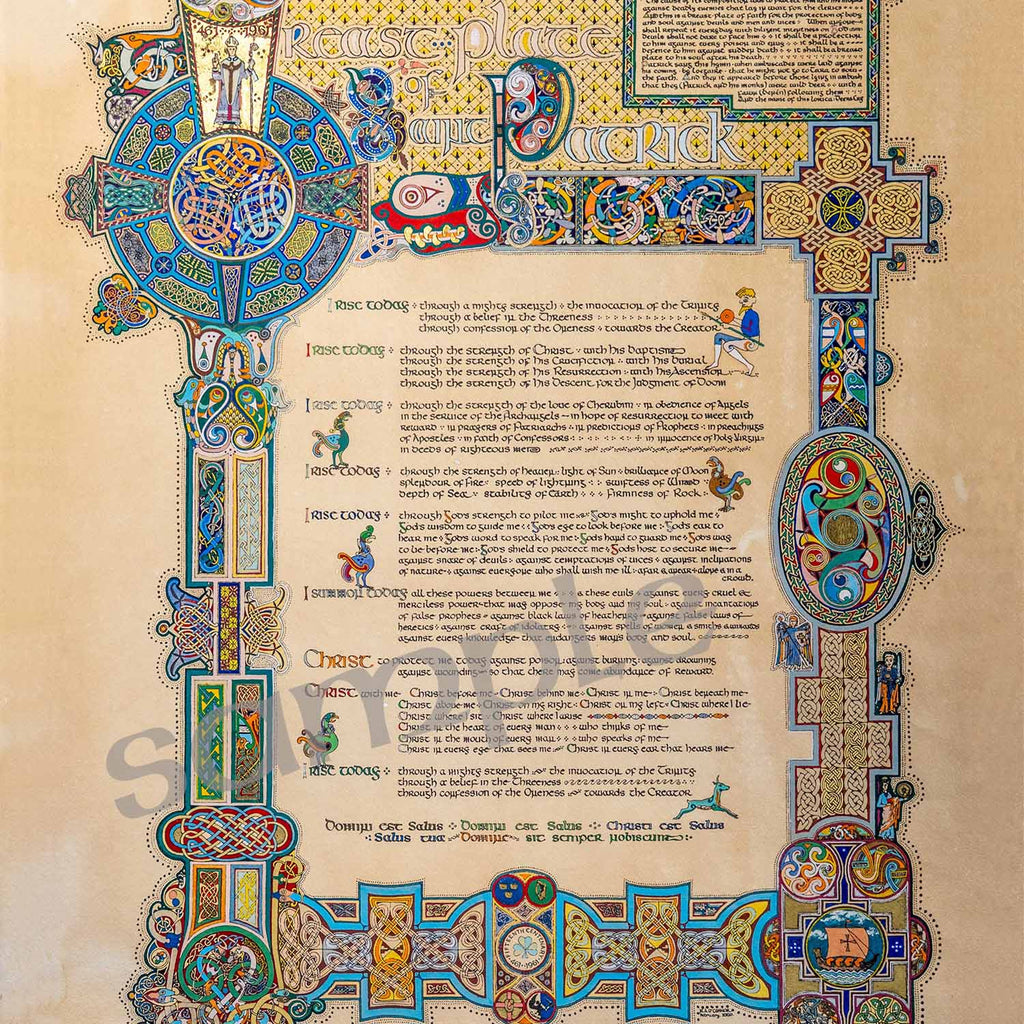 461 1961
Breast plate
of
Saint Patrick
against deadly enemies that lay in wait for the clerics
And this is a breast-plate of faith for the protection of body
and soul against devils and men and vices When anyone
shall repeat it everyday with diligent intentness on God
devils shall not dare to face him it shall be a protection
to him against every poison and envy it shall be a
defence to him against sudden death it shall be a breast
plate to his soul after his death
Patrick sang this hymn when ambuscades were laid against
his coming by Loegaire that he might not go to Tara to sow
the faith And they it appeared before those lying in ambush
that they (Patrick and his monks) were wild deer with a
Fawn following them
And the name of this Lorica
I Rise today through a mighty strength the invocation of the Trinity
through a belief in the Threeness
through confession of the Oneness towards the Creator
I Rise today through the strength of Christ with his baptism
through the strength of his Crucifiction with his burial
through the strength of his Resurrection with his Ascension
through the strength of his Descent for the Judgment of Doom
I Rise today through the strength of the love of Cherubim in obedience of Angels
in the service of the Archangels in hope of resurrection to meet with
reward in prayers of Patriarchs in predictions of Prophets in preachings
of Apostles in faith of Confessors in innocence of Holy Virgins
in deeds of righteous men
I Rise today through the strength of heaven light of Sun brilliance of Moon
splendour of Fire speed of lightning swiftess of Wind
depth of Sea stability of Earth Firmness of Rock
I Rise today through God's strength to pilot me God's might to uphold me
God's wisdom to guide me God's eye to look before me God's ear to
hear me God's word to speak for me God's hand to guard me God's way
to lie before me God's shield to protect me God's host to secure me
against snare of devils against temptations of vices against inclinations
of nature against everyone who shall wish me ill afar & anear alone & in a
crowd.
I summon today all these powers between me & these evils against every cruel &
merciless power that may oppose my body and my soul against incantations
of false prophets against black laws of heathenry against false laws of
heretics against craft of idolatry against spells of women & smiths & wizards
against every knowledge that endangers man's body and soul.
Christ to protect me today against poison against burning against drowning
against wounding so that there may come abundance of reward.
Christ with me Christ before me Christ behind me Christ in me Christ beneath me
Christ above me Christ on my right Christ on my left Christ where I lie
Christ where I sit Christ where I arise
Christ in the heart of every man who thinks of me
Christ in the mouth of every man who speaks of me
Christ in every eye that sees me Christ in every ear that hears me
I Rise today through a mighty strength the invocation of the Trinity
through a belief in the Threeness
through confession of the Oneness towards the Creator
Domini est Salus Domini est Salus Christi est Salus
Salus tua Domine sit semper vobiscum
461-1961
sample